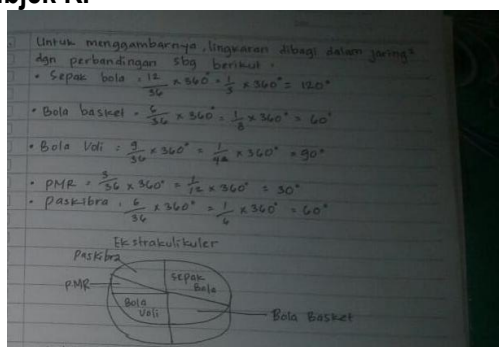 Untuk menggambarnya, lingkaran dibagi dalam jaring²
dgn perbandingan sbg berikut.
• Sepak bola : 12/36 x 360° = 1/3 x 360° = 120°
• Bola basket = 6/36 x 360° = 1/8 x 360° = 60°
• Bola Voli = 9/36 x 360° = 1/4 x 360° = 90°
• PMR = 3/36 x 360° = 1/12 x 360° = 30°
• Paskibra : 6/36 x 360° = 1/6 x 360° = 60°
Ekstrakulikuler
Paskibra
Sepak
Bola
PMR
Bola
Voli
Bola Basket